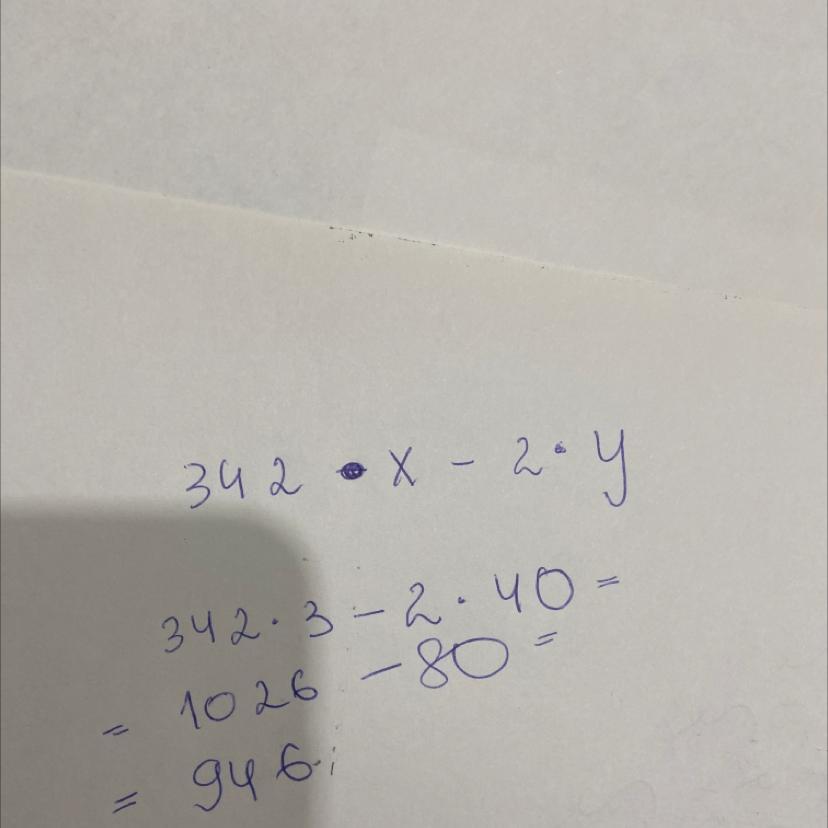 342 • x - 2 · y
342 · 3 - 2 · 40 =
= 1026 - 80 =
= 946